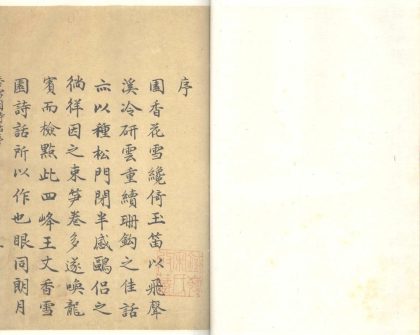 序
園香花雪纔倚玉笛以飛聲
溪冷研雲重續珊鈎之佳話
亦以種松門閉半感鷗侶之
徜徉因之束笋卷多遂喚龍
賓而檢點此四峰王丈香雪
園詩話所以作也眼同朗月